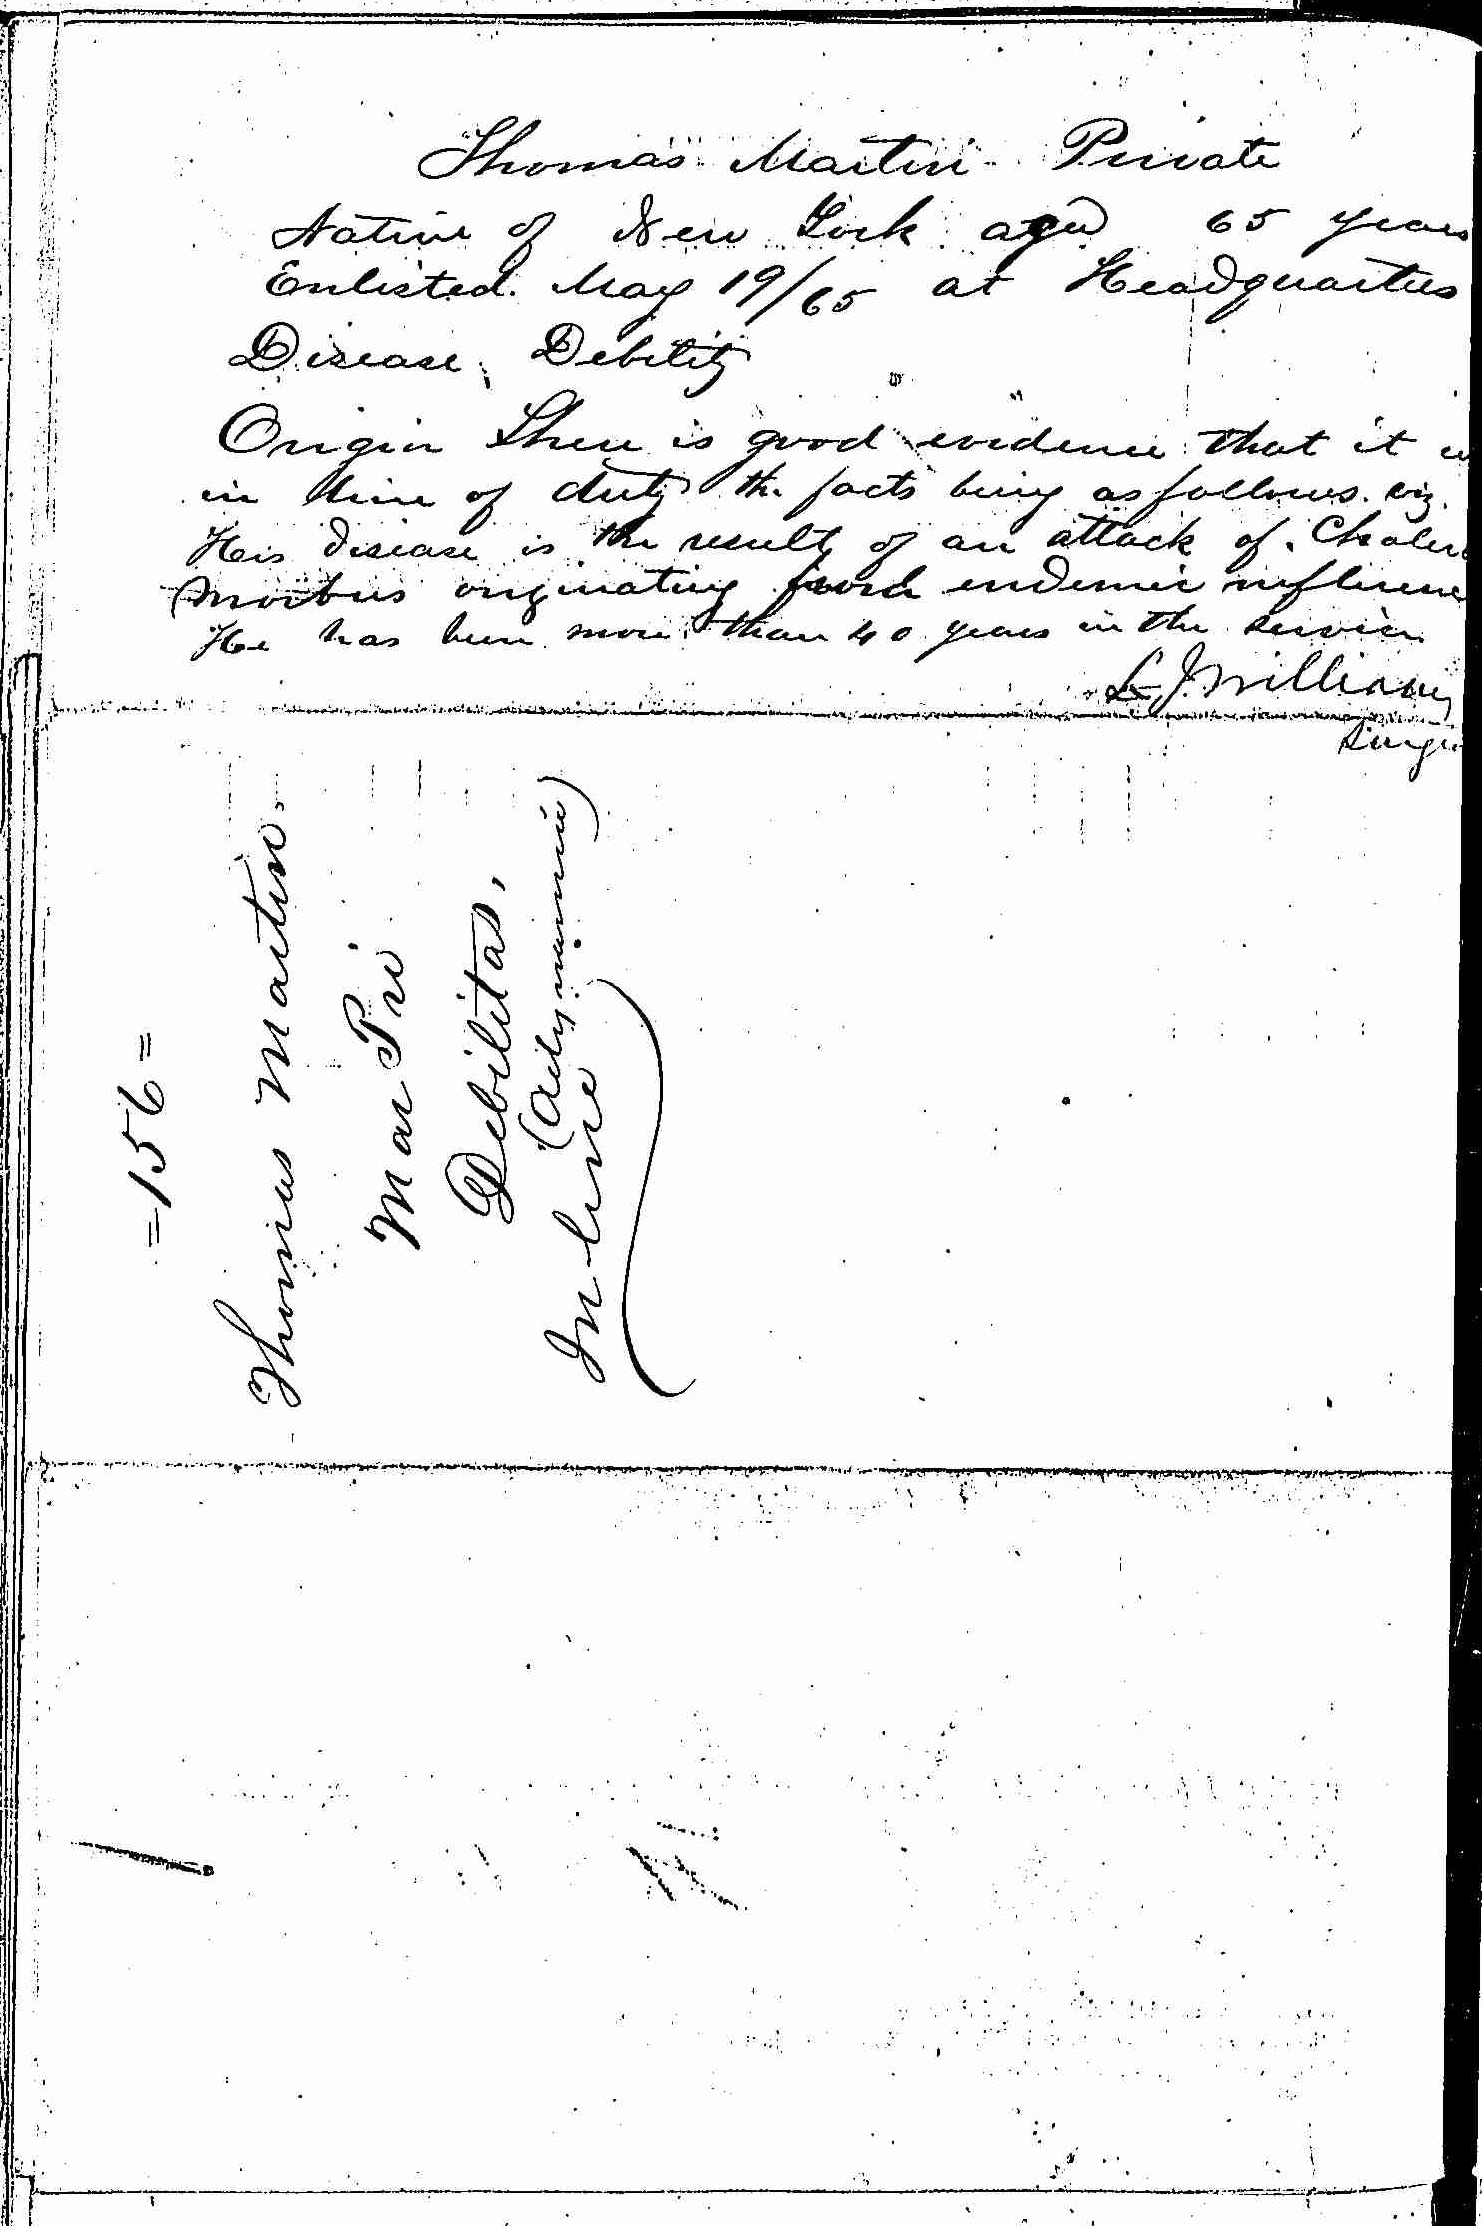 Thomas Martin Private
Native of New York aged 65 years
Enlisted May 19/65 at Headquarters
Disease, Debility
Origin There is good evidence that it
in line of duty the facts being as follows. viz.
His disease is the result of an attack of Cholera
Morbus originating from endemic influence
He has been more than 40 years in the service
L J. Williams
Surge
=156=
Thomas Martin.
Mar Pri
Debilitas,
In line